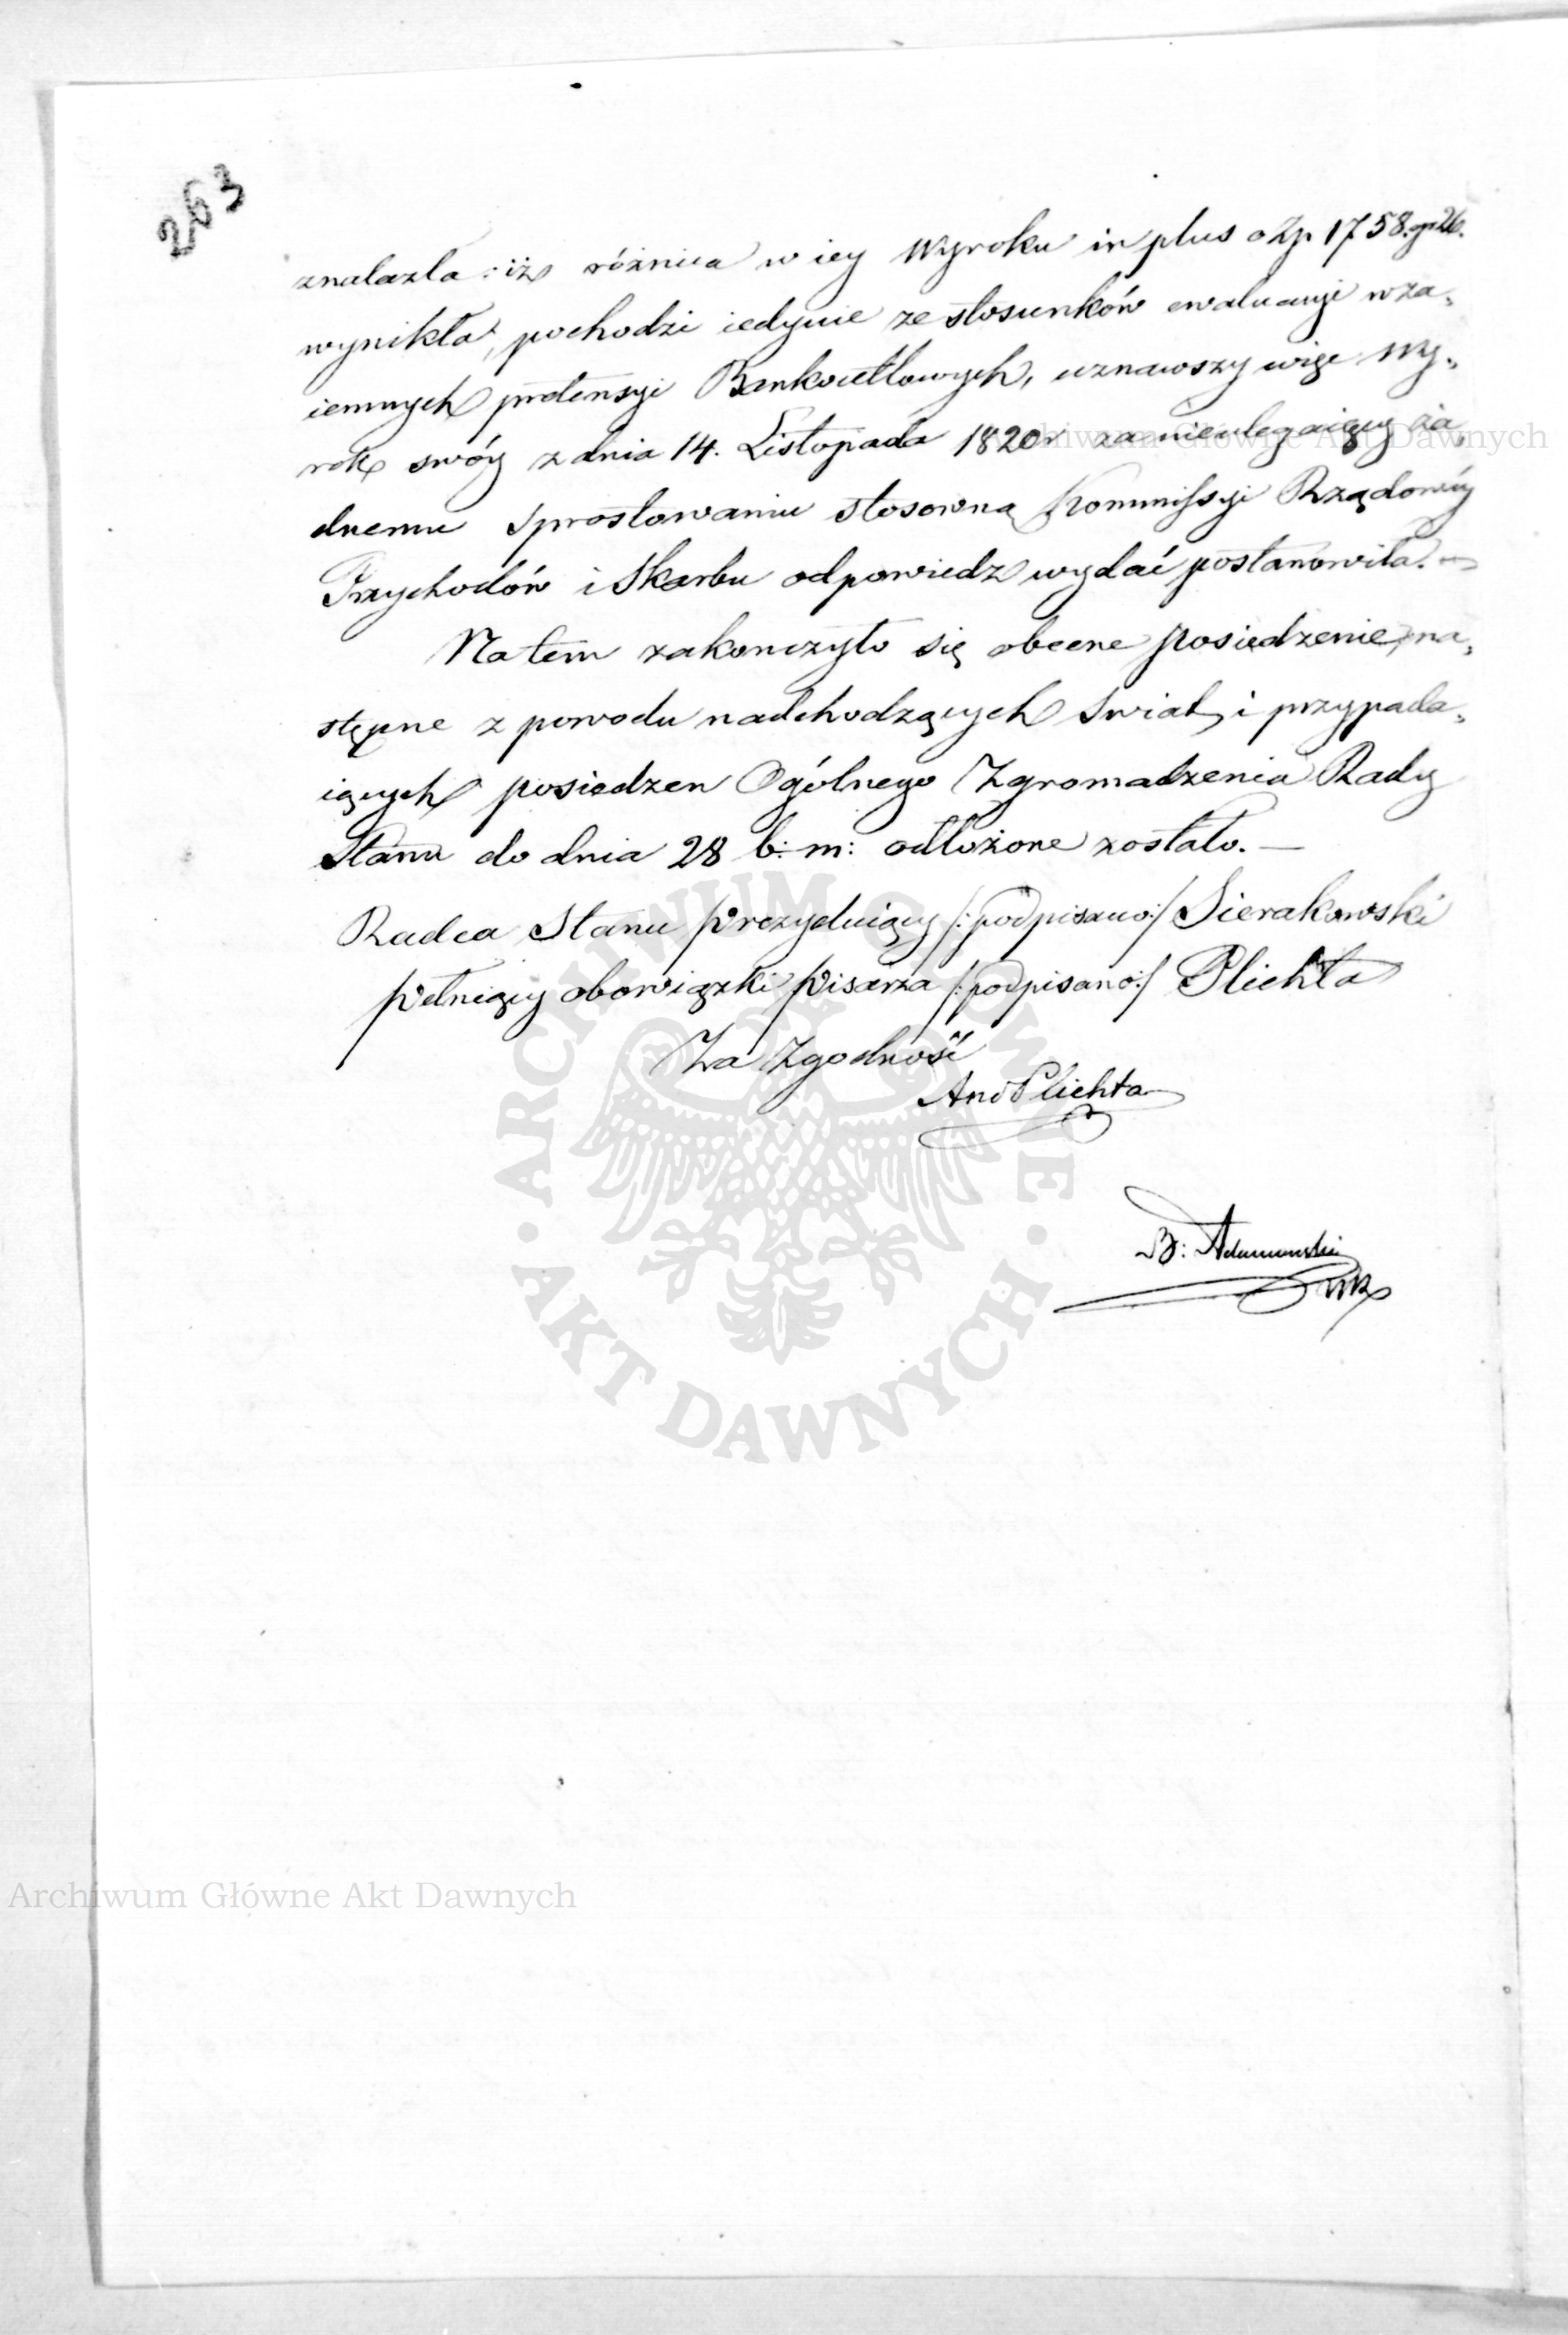 263
znalazła: iż różnica w iey Wyroku in plus o Zp 1758. gr 26.
wynikła, pochodzi iedynie ze stosunków ewaluacyi wza„
iemnych pretensyi Bankocetlowych, uznawszy więc Wy„
rok swóy z dnia 14. Listopada 1820r za nieulegaiący ża„
dnemu sprostowaniu stosowną Kommissyi Rządowéy
Przychodów i Skarbu odpowiedz wydać postanowiła. —
Na tem zakonczyło się obecne posiedzenie, na„
stępne z powodu nadchodzących Swiat, i przypada„
iących posiedzen Ogólnego Zgromadzenia Rady
Stanu do dnia 28 b: m: odłożone zostało. —
Radca Stanu Prezyduiący /: podpisano:/ Sierakowski
Pełniący obowiązki Pisarza /: podpisano:/ Plichta
Za Zgodność
And Plichta
B: Adamowski
ARCHIWUM GŁÓWNE · AKT DAWNYCH ·
Archiwum Główne Akt Dawnych
Archiwum Główne Akt Dawnych